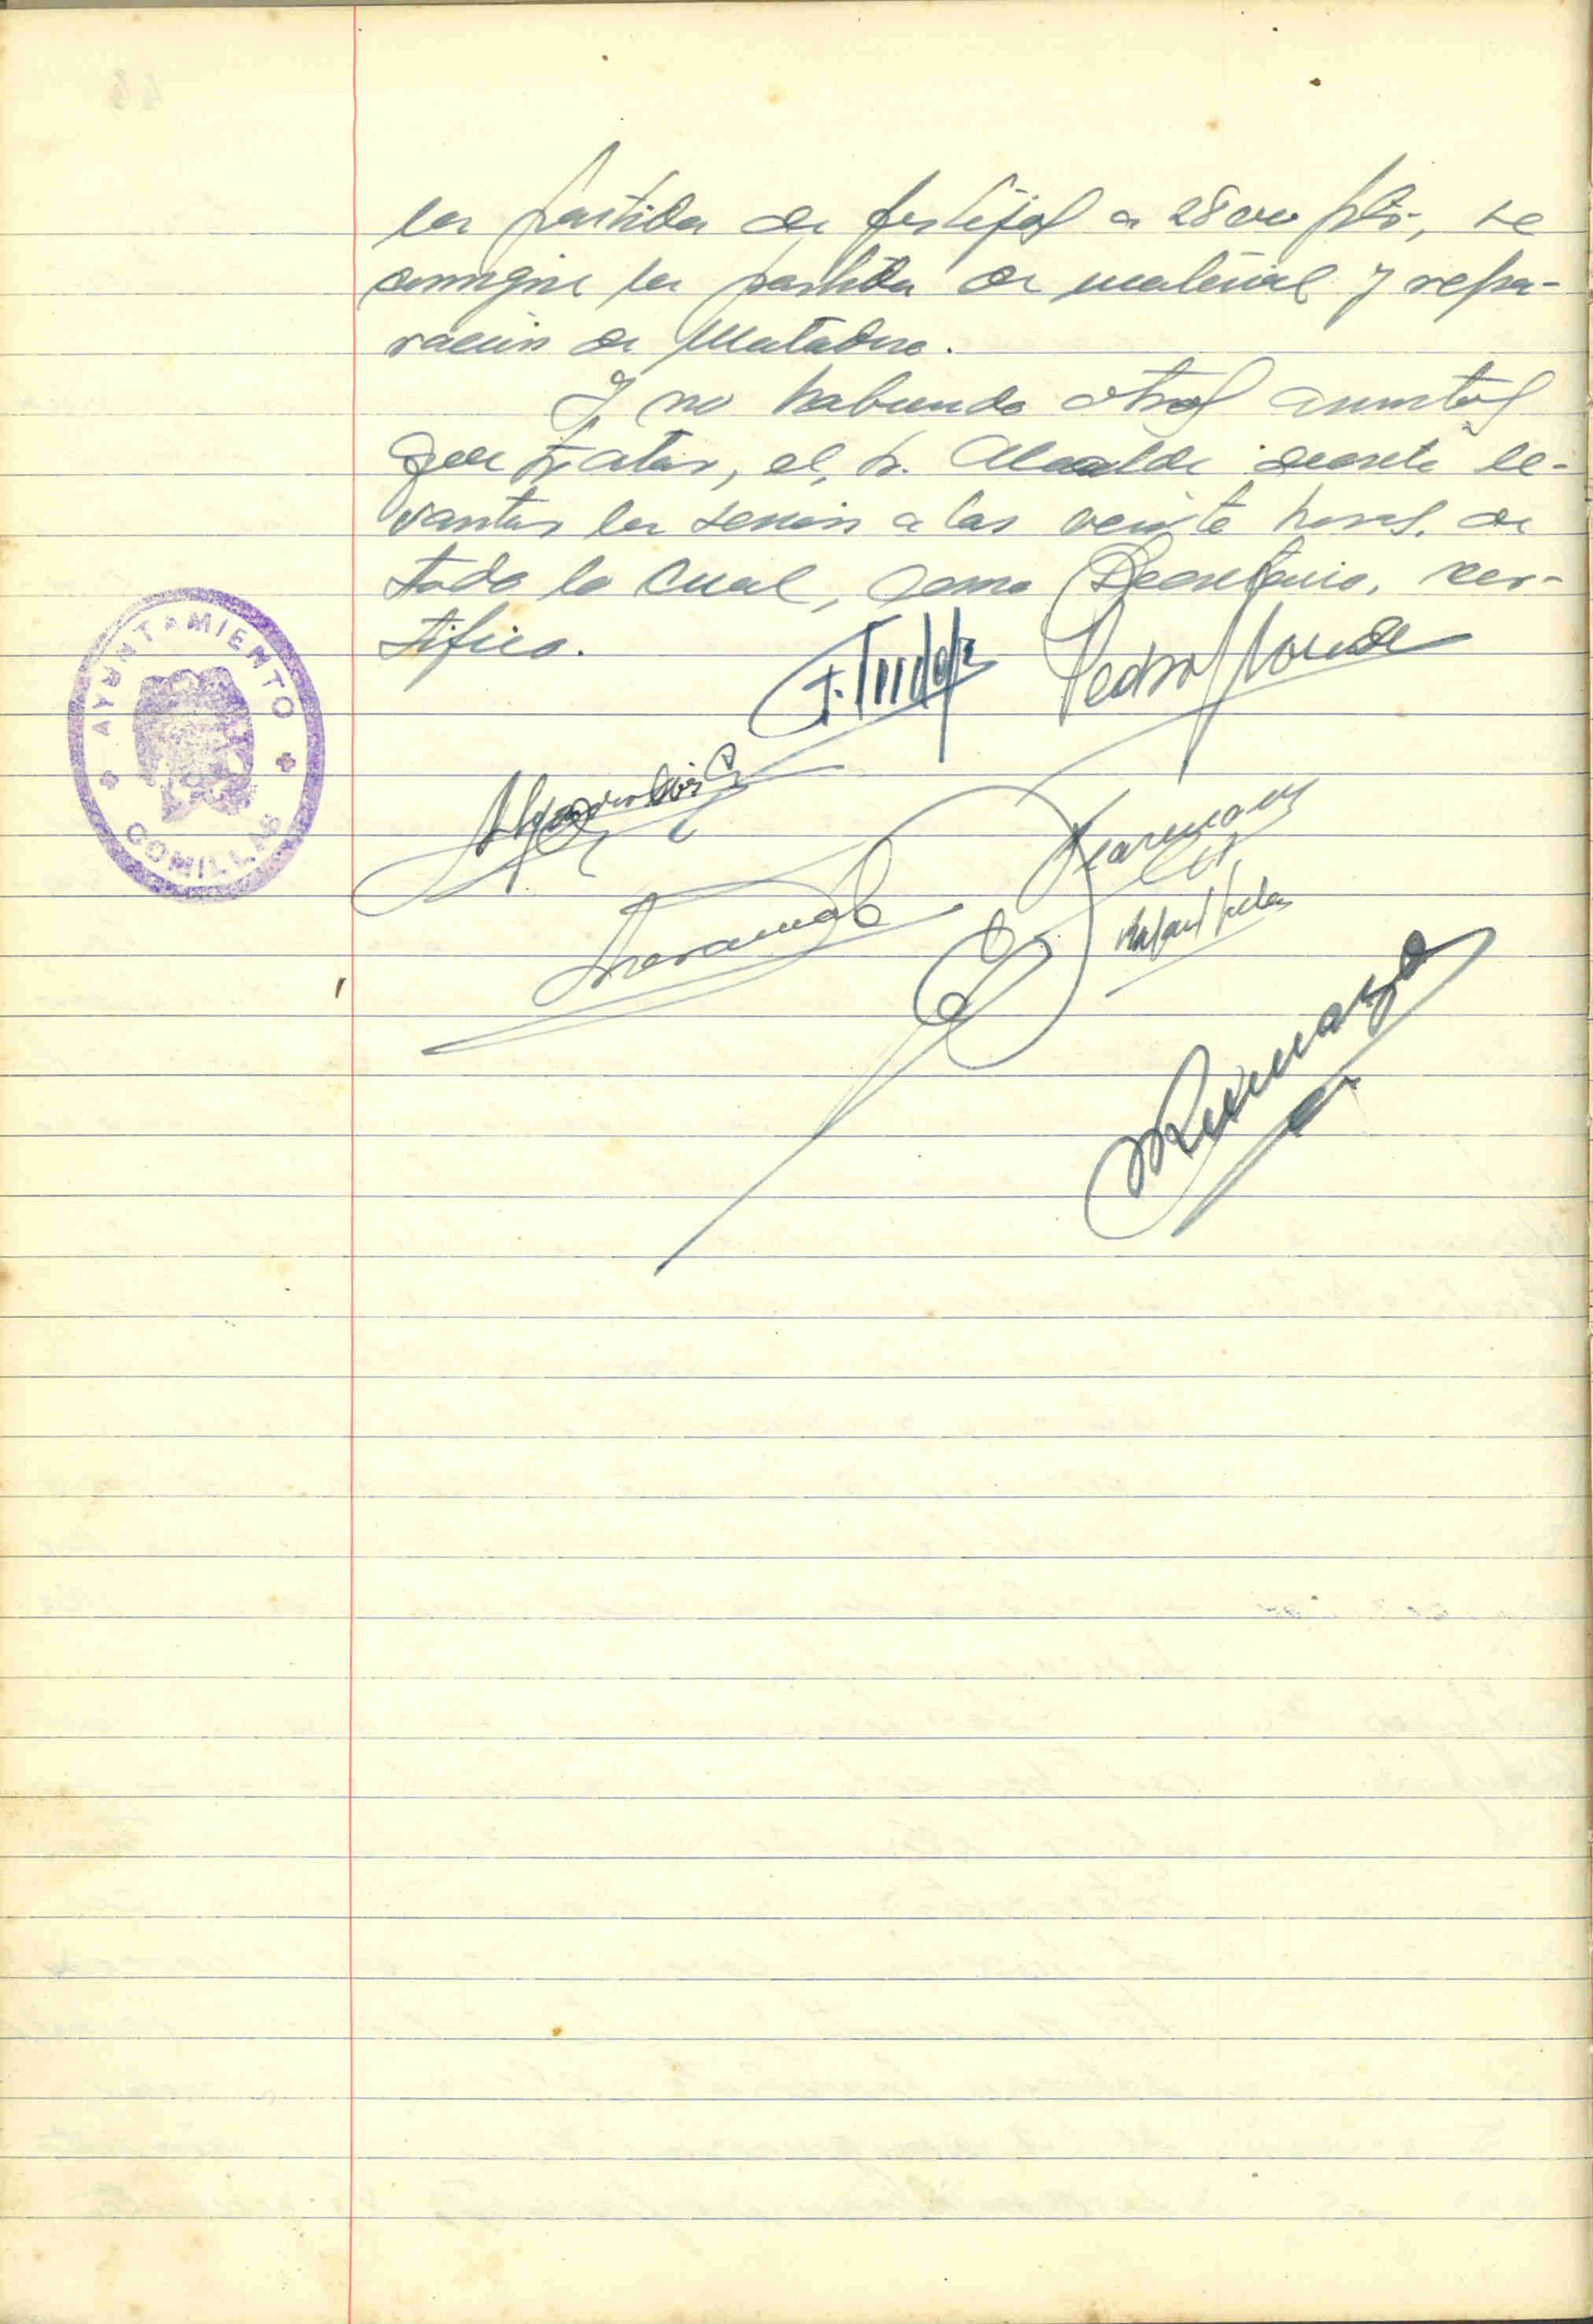 la partida de festejos a 28000 pts, se
la partida de material y repa-
ración de Matadero.
Y no habiendo otros asuntos
que tratar, el Sr. Alcalde decretó le-
vantar la sesión a las veinte horas. de
todo lo cual, como Secretario, cer-
tifico.
AYUNTAMIENTO
COMILLAS
Pedro
Rafael